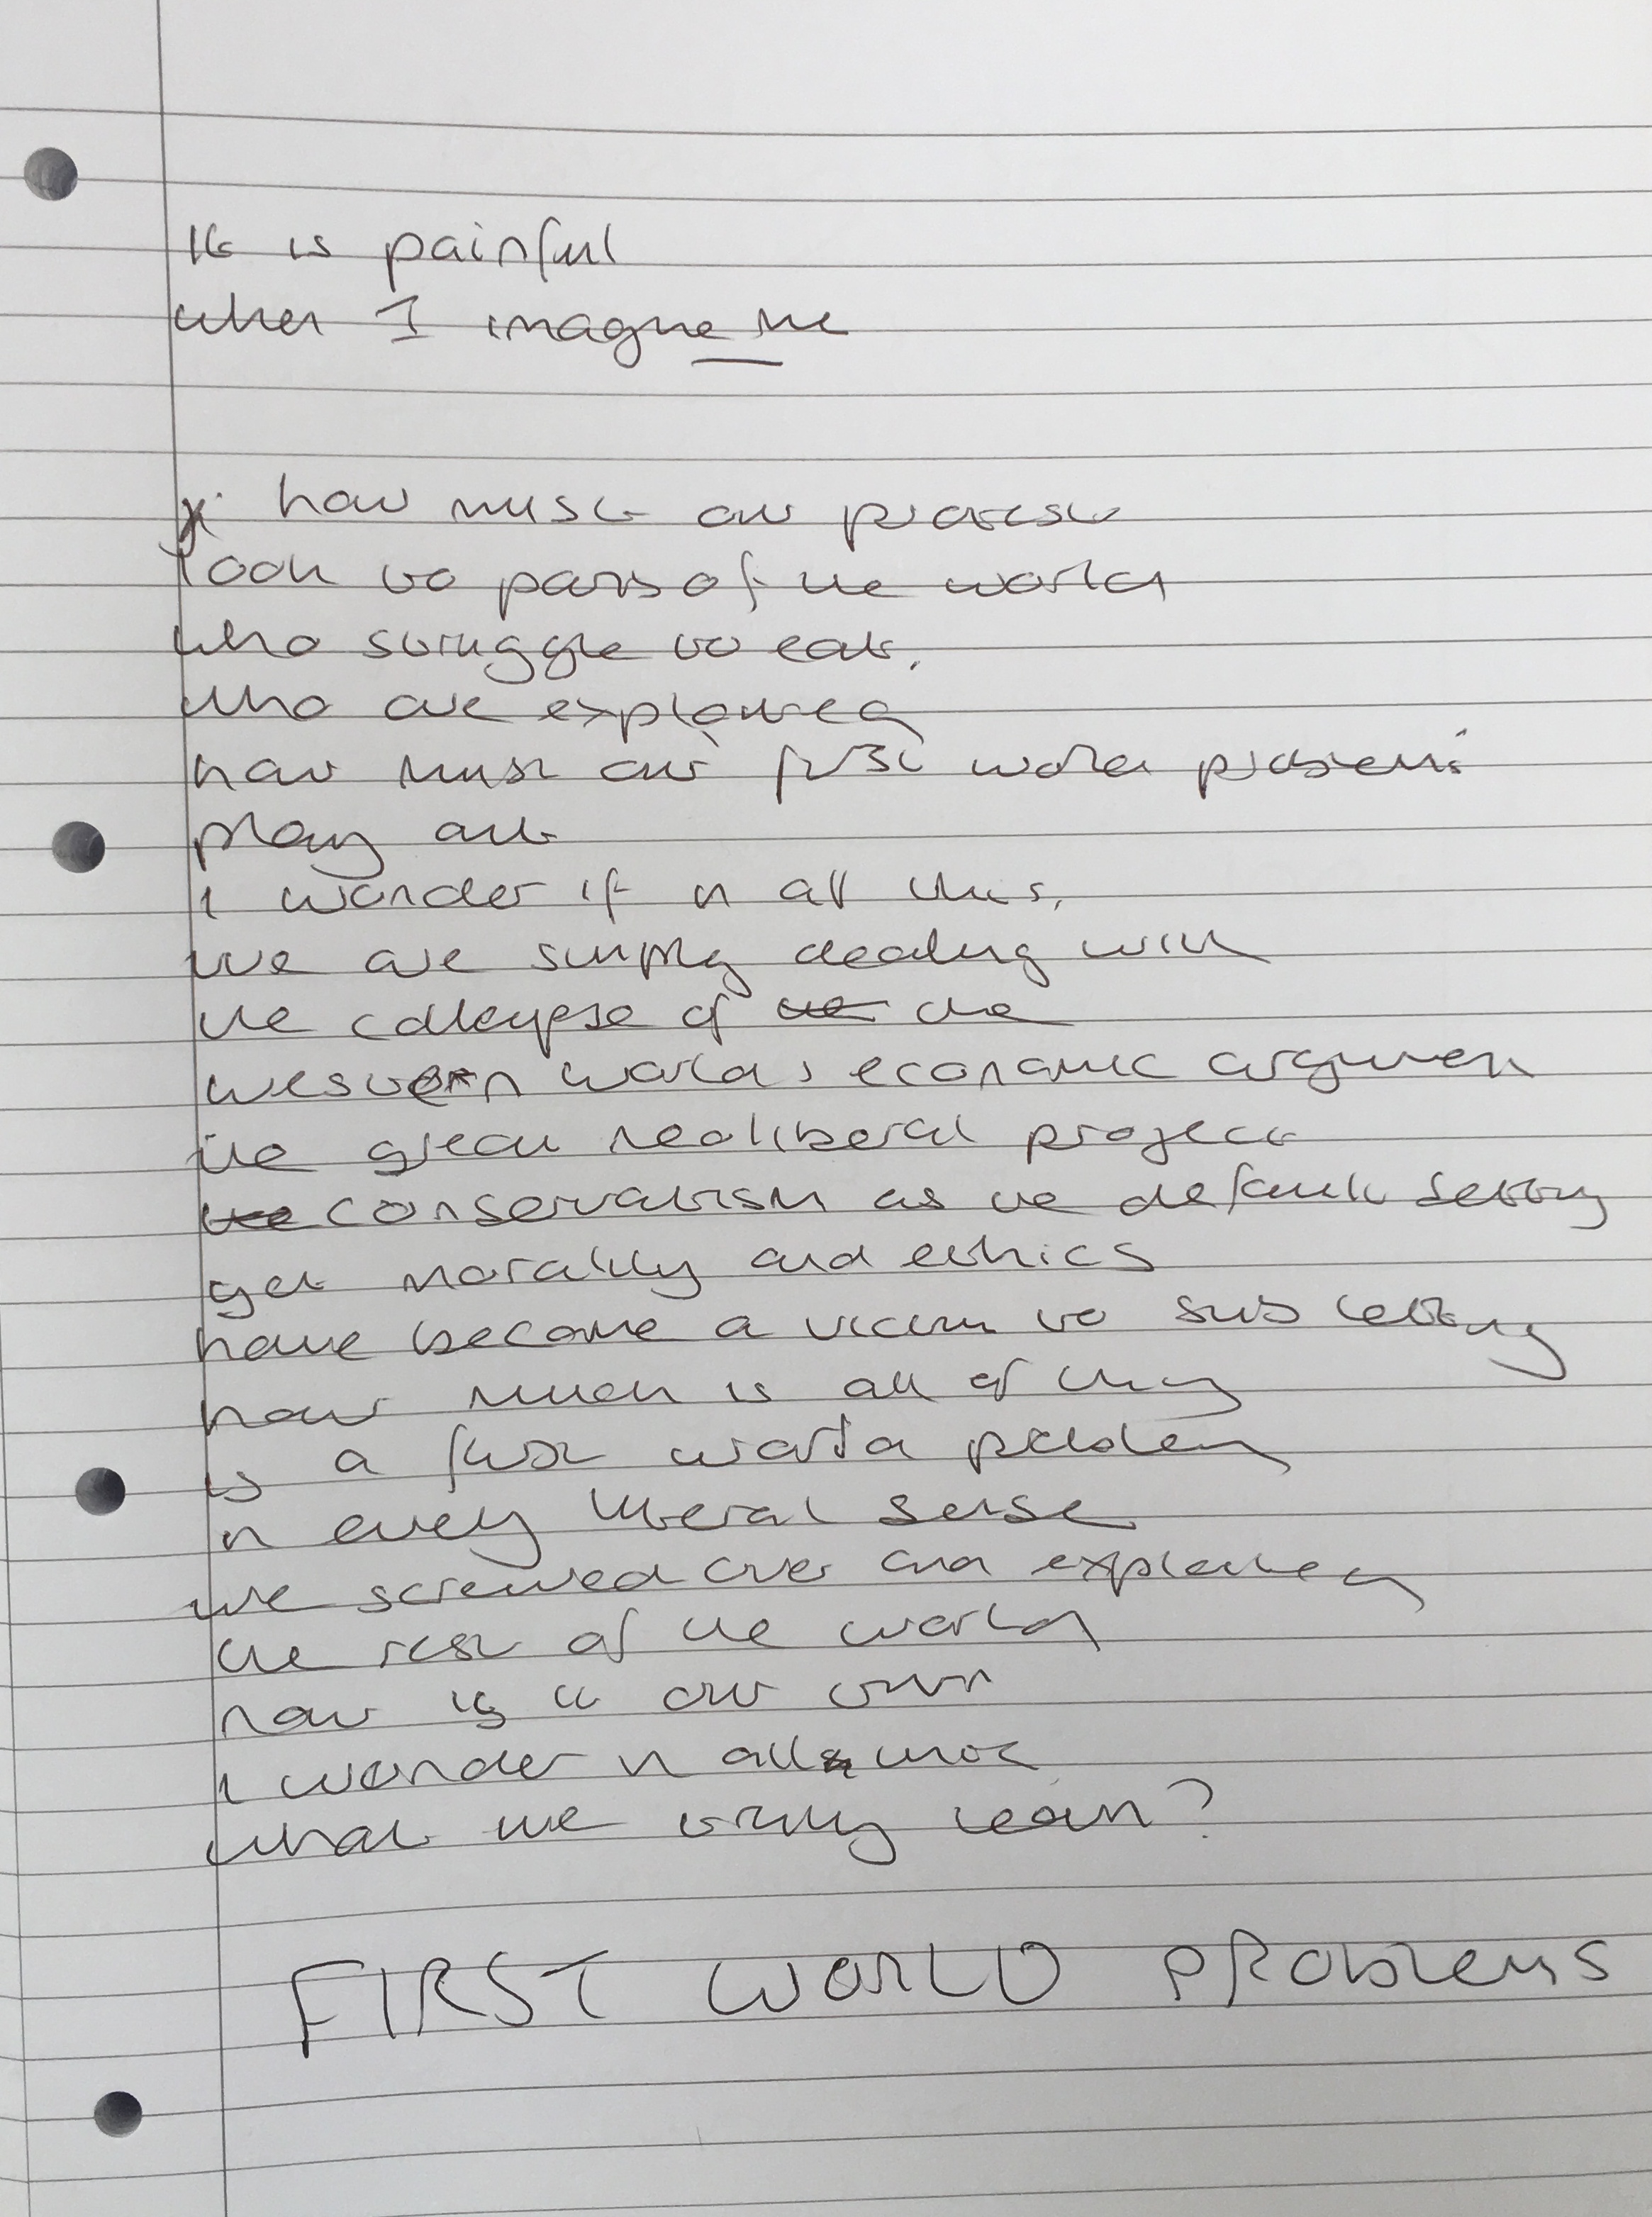 It is painful
when I imagine the
how must our protest
look to parts of the world
who struggle to eat,
who are exploited
how must our first world problems
play out
I wonder if in all this,
we are simply dealing with
the collapse of the the
western worlds economic argument
the great neoliberal project
the conservatism as the default setting
get morality and ethics
have become a victim to sub letting
how much is all of this
is a first world problem
in every literal sense
we screwed over and exploited
the rest of the world
now is it our turn
I wonder in all that
what we truly learn?
FIRST WORLD PROBLEMS